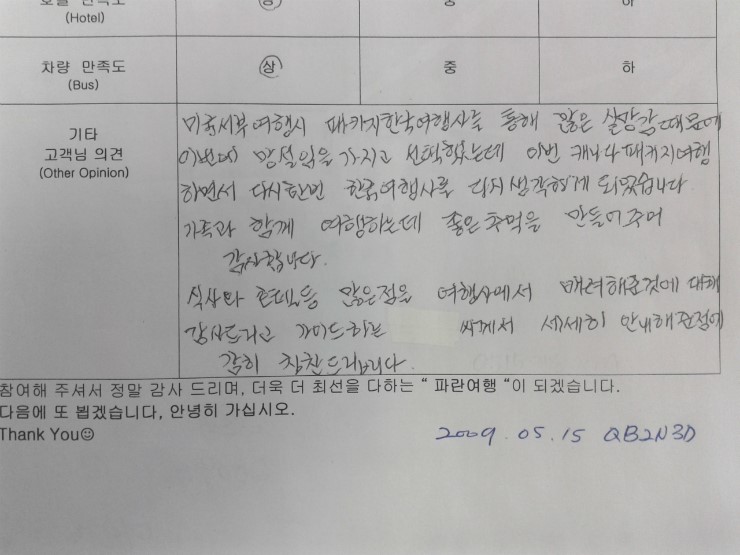 호텔 만족도 상 중 하
(Hotel)
차량 만족도 상 중 하
(Bus)
기타
고객님 의견
(Other Opinion)
미국서부여행시 패카지한국여행사를 통해 많은 실망감때문에
이번에 망설임을 가지고 선택했는데 이번 캐나다패키지여행
하면서 다시한번 한국여행사를 다시생각하게 되였습니다
가족과 함께 여행하는데 좋은추억을 만들어주어
감사합니다.
식사와 호텔등 많은점을 여행사에서 배려해준것에 대해
감사드리고 가이드하는 씨께서 세세히 안내해준점에
감히 칭찬드립니다.
참여해 주셔서 정말 감사 드리며, 더욱 더 최선을 다하는 “ 파란여행 “이 되겠습니다.
다음에 또 뵙겠습니다, 안녕히 가십시오.
Thank You☺
2009. 05. 15 QB2N3D